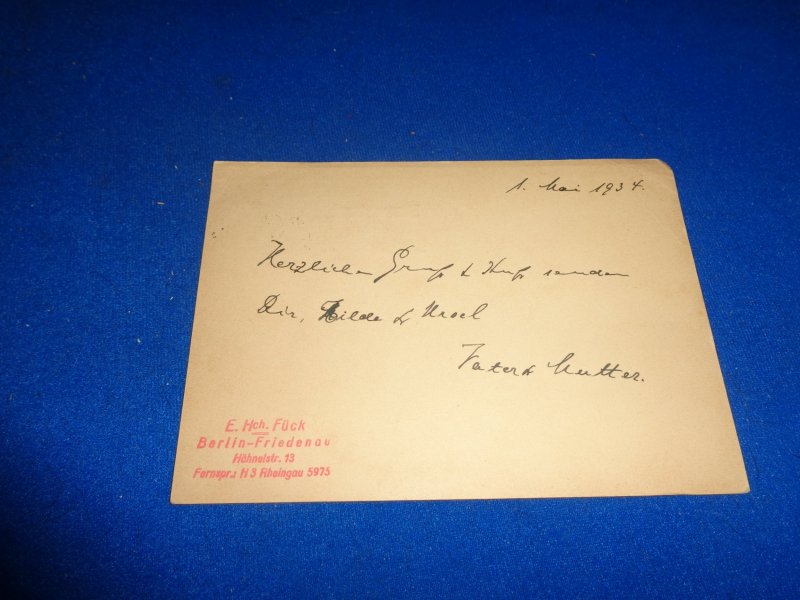 1. Mai 1934.
Herzlichen Gruß & Kuß senden
Dir, Hilde & Ursel
Vater & Mutter.
E. Hch. Fück
Berlin-Friedenau
Hähnelstr. 13
Fernspr.: H 3 Rheingau 5975